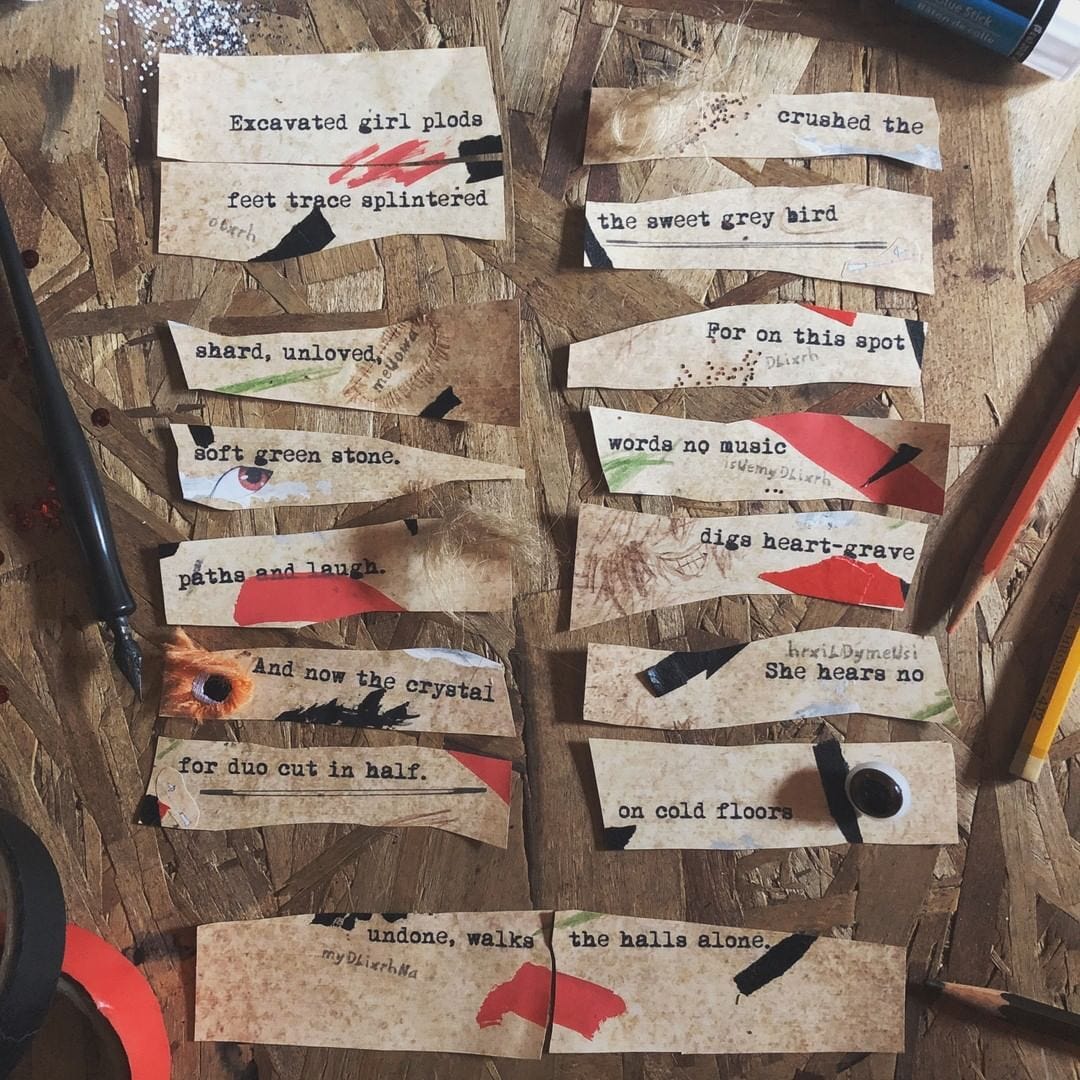 Glue Stick
Bâton de colle
Excavated girl plods
feet trace splintered
otxrh
shard, unloved,
meUoma
soft green stone.
paths and laugh.
And now the crystal
for duo cut in half.
crushed the
the sweet grey bird
For on this spot
DLixrh
words no music
isUemyDLixrh
digs heart-grave
hrxiLDymeUsi
She hears no
on cold floors
undone, walks
the halls alone.
myDLixrhNa